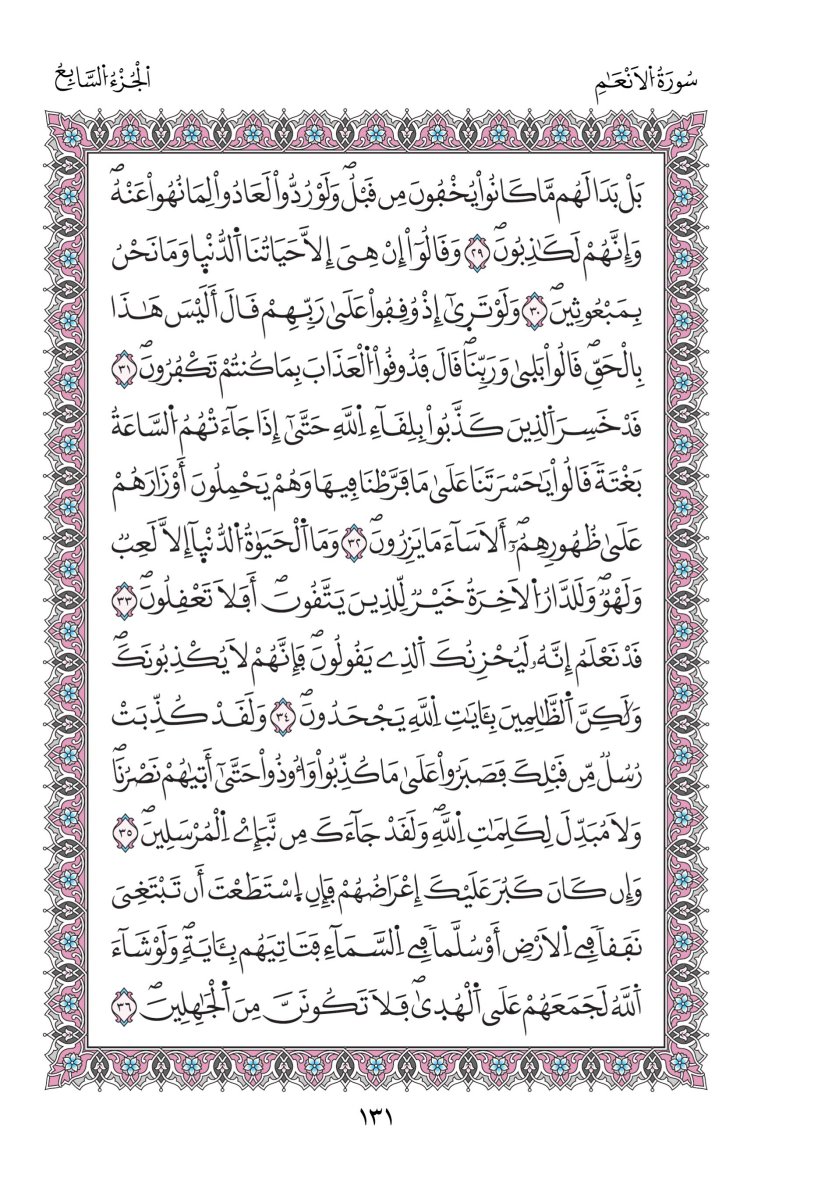 سُورَةُ الَانْعَٰمِ
الْجُزْءُ السَّابِعُ
بَلْ بَدَا لَهُم مَّا كَانُواْ يُخْفُونَ مِن قَبْلُۖ وَلَوْ رُدُّواْ لَعَادُواْ لِمَا نُهُواْ عَنْهُۖ
وَإِنَّهُمْ لَكَٰذِبُونَۖ ٢٩ وَقَالُوٓاْ إِنْ هِىَ إِلَّا حَيَاتُنَا اَلدُّنْيَا وَمَا نَحْنُ
بِمَبْعُوثِينَۖ ٣٠ وَلَوْ تَرَىٰٓ إِذْ وُقِفُواْ عَلَىٰ رَبِّهِمْ قَالَ أَلَيْسَ هَٰذَا
بِالْحَقِّۖ قَالُواْ بَلَىٰ وَرَبِّنَاۖ قَالَ فَذُوقُواْ اُلْعَذَابَ بِمَا كُنتُمْ تَكْفُرُونَۖ ٣١
قَدْ خَسِرَ اَلذِينَ كَذَّبُواْ بِلِقَآءِ اِللَّهِ حَتَّىٰٓ إِذَا جَآءَتْهُمُ اُلسَّاعَةُ
بَغْتَةٗ قَالُواْ يَٰحَسْرَتَنَا عَلَىٰ مَا فَرَّطْنَا فِيهَا وَهُمْ يَحْمِلُونَ أَوْزَارَهُمْ
عَلَىٰ ظُهُورِهِمُۥٓۖ أَلَا سَآءَ مَا يَزِرُونَۖ ٣٢ وَمَا اَلْحَيَوٰةُ اُلدُّنْيَآ إِلَّا لَعِبٞ
وَلَهْوٞۖ وَلَلدَّارُ اُلَاخِرَةُ خَيْرٞ لِّلذِينَ يَتَّقُونَۖ أَفَلَا تَعْقِلُونَۖ ٣٣
قَدْ نَعْلَمُ إِنَّهُۥ لَيُحْزِنُكَ اَلذِے يَقُولُونَۖ فَإِنَّهُمْ لَا يُكْذِبُونَكَۖ
وَلَٰكِنَّ اَلظَّٰلِمِينَ بِـَٔايَٰتِ اِللَّهِ يَجْحَدُونَۖ ٣٤ وَلَقَدْ كُذِّبَتْ
رُسُلٞ مِّن قَبْلِكَ فَصَبَرُواْ عَلَىٰ مَا كُذِّبُواْ وَأُوذُواْ حَتَّىٰٓ أَتَىٰهُمْ نَصْرُنَاۖ
وَلَا مُبَدِّلَ لِكَلِمَٰتِ اِللَّهِۖ وَلَقَدْ جَآءَكَ مِن نَّبَإِےْ اِلْمُرْسَلِينَۖ ٣٥
وَإِن كَانَ كَبُرَ عَلَيْكَ إِعْرَاضُهُمْ فَإِنِ اِسْتَطَعْتَ أَن تَبْتَغِىَ
نَفَقاٗ فِے اِلَارْضِ أَوْ سُلَّماٗ فِے اِلسَّمَآءِ فَتَاتِيَهُم بِـَٔايَةٖۖ وَلَوْ شَآءَ
اَللَّهُ لَجَمَعَهُمْ عَلَى اَلْهُدَىٰۖ فَلَا تَكُونَنَّ مِنَ اَلْجَٰهِلِينَۖ ٣٦
١٣١